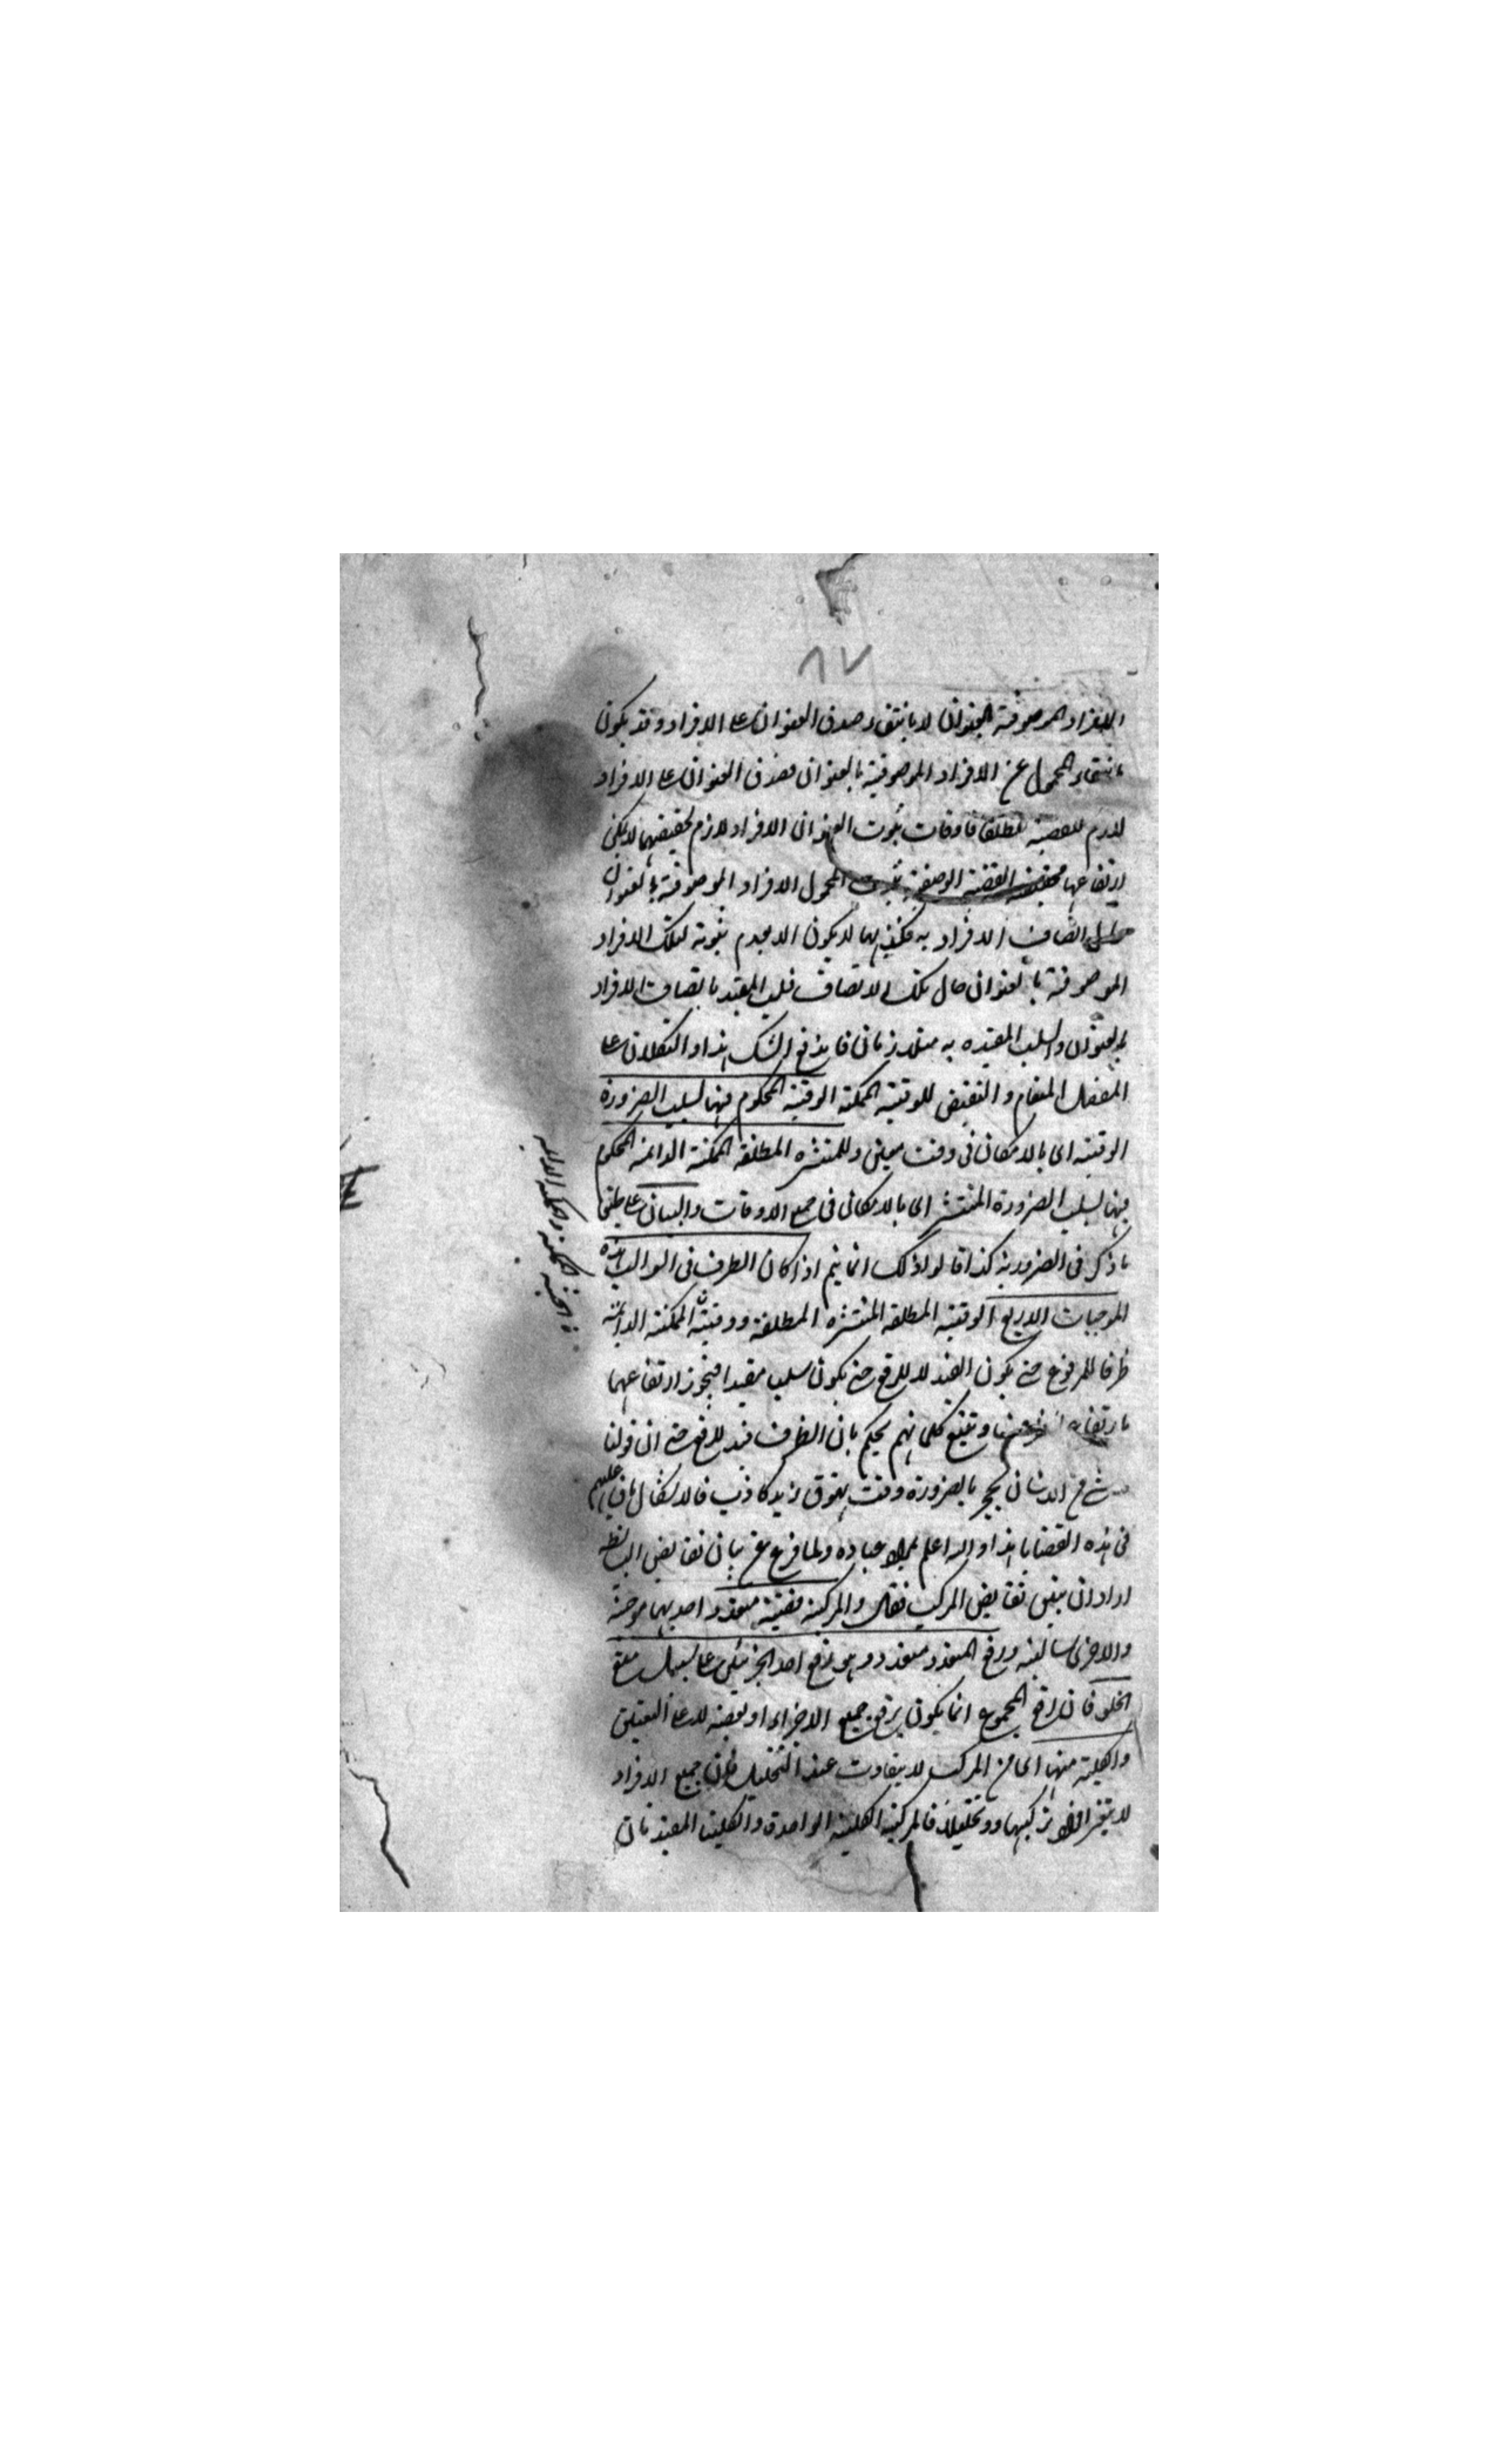 ٨٧
الافراد الموصوفة بالعنوان لا بانتفاء صدق العنوان على الافراد وقد يكون
بانتفاء المحمول عن الافراد الموصوفية بالعنوان فصدق العنوان على الافراد
لازم للقضية مطلقا فاوقات ثبوت العنوان الافراد لازم لحقيقتهما لا يمكن
ارتفاعها القضية الوصفية ثبوت المحمول الافراد الموصوفة بالعنوان
اتصاف الافراد به فكذبها لا يكون الا بعدم ثبوته لتلك الافراد
الموصوفة بالعنوان حال تلك الاتصاف فسلب المقيد باتصاف الافراد
بالعنوان والسلب المقيده به متلازمان فاندفع الشك هذا والتكلان على
المفضل المنعام والنقيض للوقتية الممكنة الوقتية المحكوم فيها بسلب الضرورة
الوقتية اى بالامكان فى وقت معين وللمنتشره المطلقة الممكنة الدائمة المحكوم
فيها بسلب الضرورة المنتشر اى بالامكان فى جميع الاوقات والبيان على طبق
ما ذكر فى الضرورية كذا قالوا ذلك انما يتم اذا كان الظرف فى السوالب هذه
الموجبات الاربع الوقتية المطلقة المنتشره المطلقة ووقتية الممكنة الدائمة
ظرفا للمرفوع حتى يكون القيد لا للرفع حتى يكون سلب مقيدا فيجوز ارتفاعهما
بارتفاع وتتبع كلماتهم يحكم بان الظرف قيد للرفع حتى ان قولنا
شئ من الانسان بحجر بالضرورة وقت نهوق زيد كاذب فالاشكال باق عليهم
فى هذه القضايا هذا والله اعلم عباده ولما فرغ عن بيان نقايض البسائط
اراد ان يبين نقايض المركب فقال والمركبة قضية متعدد احديهما موجبة
والاخرى سالبة ورفع المتعدد متعدد وهو رفع احد الجزئين على سبيل منع
الخلو فان رفع المجموع انما يكون برفع جميع الاجزاء او بعضه لا على التعيين
والكلية منها اى من المركب لا يتفاوت عند التحليل فان جميع الافراد
لا يتغير افراد تركيبها وتحليلا فالمركبة الكلية الواحدة والكليتا المقيدتان